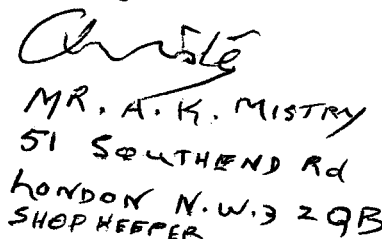 MR. A. K. MISTRY
51 SOUTHEND Rd
LONDON N.W.3 2QB
SHOPKEEPER